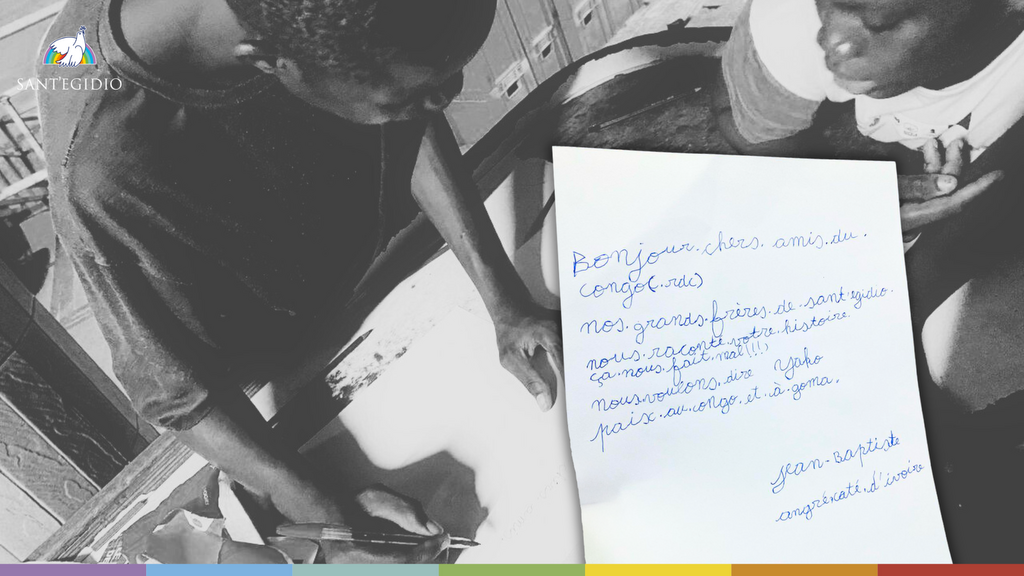 SANT'EGIDIO
Bonjour.chers.amis.du.
congo(.rdc)
nos.grands.frères.de.sant egidio.
nous.raconte.votre.histoire.
ça.nous.fait.mal(!!!)
nous.voulons.dire Yako
paix.au.congo.et.à.goma.
Jean-Baptiste
d'ivoire